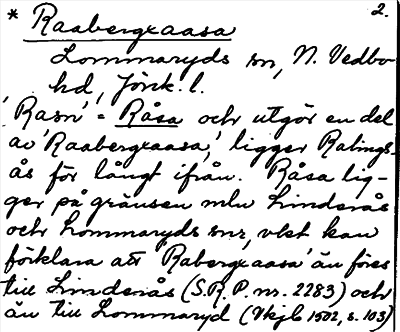 2.
* Raabergxaasa
Lommaryds sn, N. Vedbo
hd, Jönk. l.
'Rasn' = Råsa och utgör en del
av 'Raabergxaasa', ligger Ralings-
ås för långt ifrån. Råsa lig-
ger på gränsen mlm Linderås
och Lommaryds snr, vkt kan
förklara att 'Rabergxaasa' än föres
till Linderås (S.R.P. nr. 2283) och
än till Lommaryd (Vkjb 1502, s. 103)